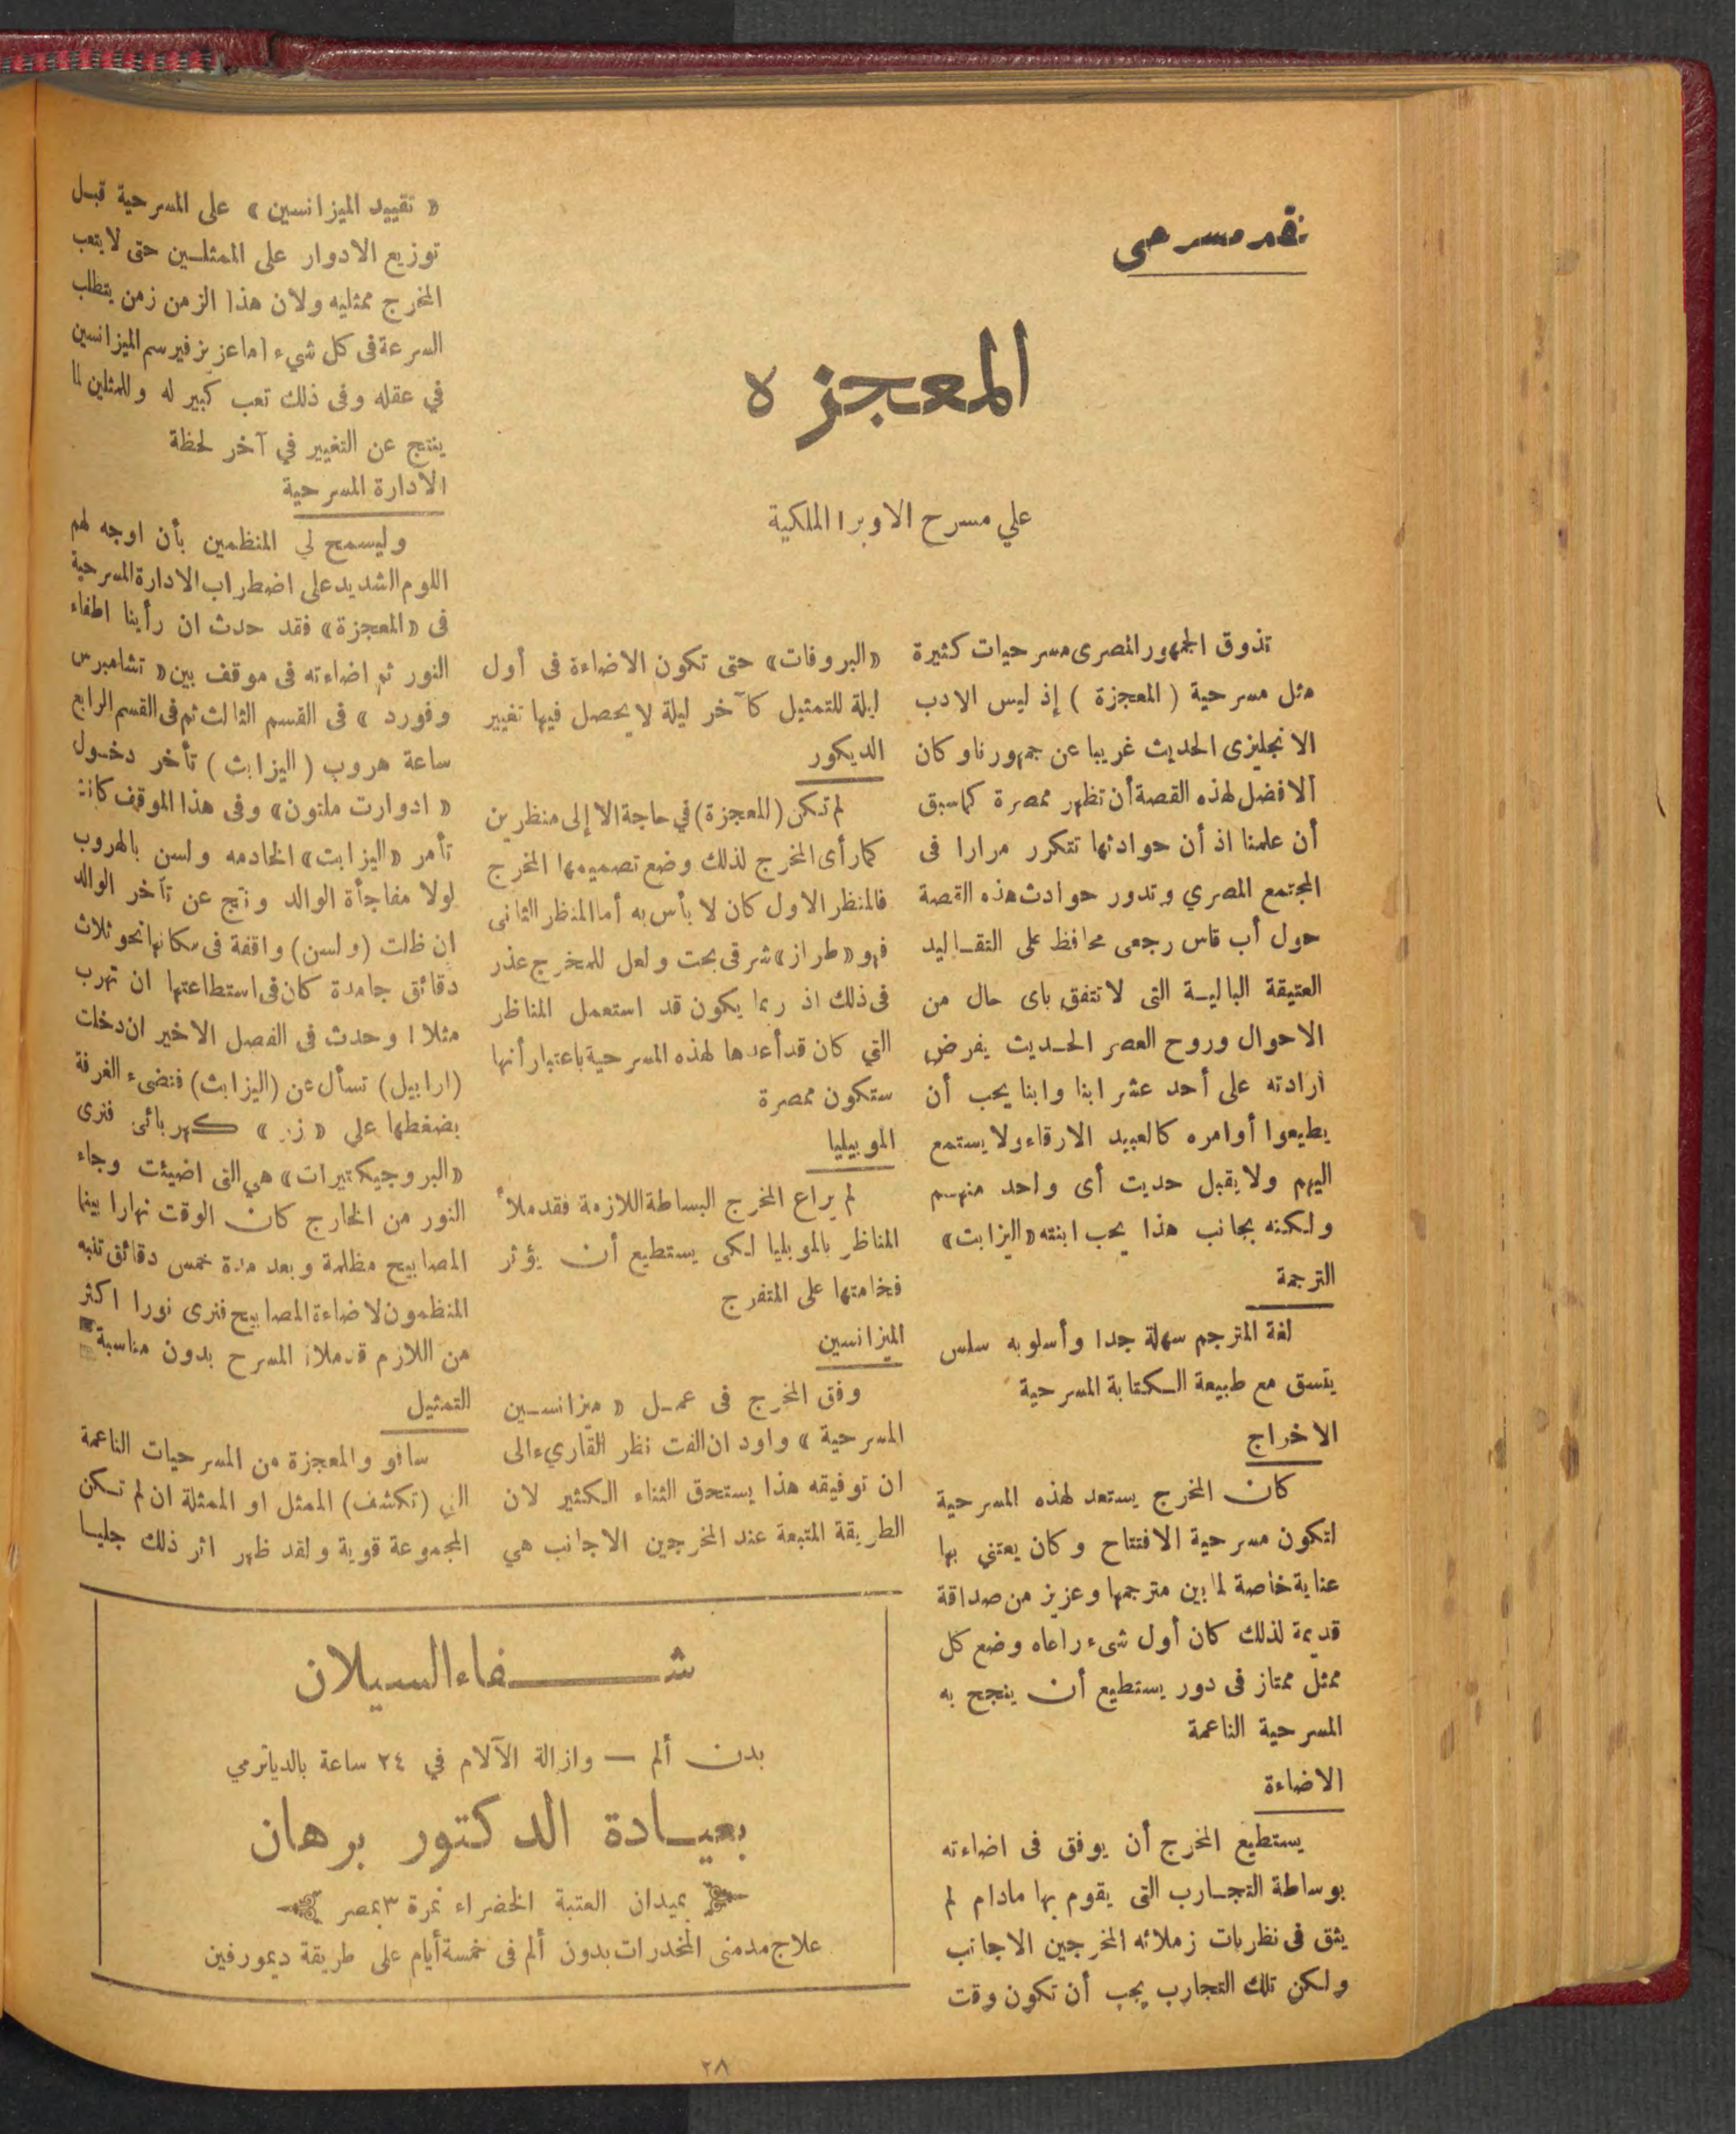 نقد مسرحى
المعجزه
علي مسرح الاوبرا الملكية
تذوق الجمهور المصرى مسرحيات كثيرة
مثل مسرحية ( المعجزة ) إذ ليس الادب
الانجليزى الحديث غريبا عن جمهورنا وكان
الافضل لهذه القصة أن تظهر ممصرة كما سبق
أن علمنا اذ أن حوادثها تتكرر مرارا فى
المجتمع المصري وتدور حوادث هذه القصة
حول أب قاس رجعى محافظ على التقاليد
العتيقة البالية التى لا تتفق باى حال من
الاحوال وروح العصر الحديث يفرض
ارادته على أحد عشر ابنا وابنا يحب أن
يطيعوا أوامره كالعبيد الارقاء ولا يستمع
اليهم ولا يقبل حديث أى واحد منهم
ولكنه بجانب هذا يحب ابنته «اليزابت»
الترجمة
لغة المترجم سهلة جدا وأسلوبه سلس
يتسق مع طبيعة الكتابة المسرحية
الاخراج
كان المخرج يستعد لهذه المسرحية
لتكون مسرحية الافتتاح وكان يعتني بها
عناية خاصة لما بين مترجمها وعزيز من صداقة
قديمة لذلك كان أول شىء راعاه وضع كل
ممثل ممتاز فى دور يستطيع أن ينجح به
المسرحية الناعمة
الاضاءة
يستطيع المخرج أن يوفق فى اضاءته
بوساطة التجارب التى يقوم بها مادام لم
يثق فى نظريات زملائه المخرجين الاجانب
ولكن تلك التجارب يجب أن تكون وقت
«البروفات» حتى تكون الاضاءة فى أول
ليلة للتمثيل كآخر ليلة لا يحصل فيها تغيير
الديكور
لم تكن (المعجزة) في حاجة الا إلى منظرين
كما رأى المخرج لذلك وضع تصميمها المخرج
فالمنظر الاول كان لا بأس به أما المنظر الثانى
فهو «طراز» شرقى بحت ولعل للمخرج عذر
فى ذلك اذ ربما يكون قد استعمل المناظر
التي كان قد أعدها لهذه المسرحية باعتبار أنها
ستكون ممصرة
الموبيليا
لم يراع المخرج البساطة اللازمة فقد ملأ
المناظر بالموبليا لكى يستطيع أن يؤثر
فخامتها على المتفرج
الميزانسين
وفق المخرج فى عمل « ميزانسين
المسرحية » واود ان الفت نظر القاريء الى
ان توفيقه هذا يستحق الثناء الكثير لان
الطريقة المتبعة عند المخرجين الاجانب هي
« تقييد الميزانسين » على المسرحية قبل
توزيع الادوار على الممثلين حتى لا يتعب
المخرج ممثليه ولان هذا الزمن زمن يتطلب
السرعة فى كل شيء اما عزيز فيرسم الميزانسين
في عقله وفى ذلك تعب كبير له وللمثلين لما
ينتج عن التغيير في آخر لحظة
الادارة المسرحية
وليسمح لي المنظمين بأن اوجه لهم
اللوم الشديد على اضطراب الادارة المسرحية
فى «المعجزة» فقد حدث ان رأينا اطفاء
النور ثم اضاءته فى موقف بين « تشامبرس
وفورد » فى القسم الثالث ثم فى القسم الرابع
ساعة هروب ( اليزابث ) تأخر دخول
« ادوارت ملتون» وفى هذا الموقف كانت
تأمر «اليزابت» الخادمه ولسن بالهروب
لولا مفاجأة الوالد ونتج عن تأخر الوالد
ان ظلت (ولسن) واقفة فى مكانها نحو ثلاث
دقائق جامدة كان فى استطاعتها ان تهرب
مثلا ! وحدث فى الفصل الاخير ان دخلت
(ارابيل) تسأل عن (اليزابث) فتضىء الغرفة
بضغطها علي « زر » كهربائى فنرى
«البروجيكتيرات» هي التى اضيئت وجاء
النور من الخارج كان الوقت نهارا بينما
المصابيح مظلمة وبعد مدة خمس دقائق تنبه
المنظمون لاضاءة المصابيح فنرى نورا اكثر
من اللازم قد ملأ المسرح بدون مناسبة
التمثيل
سافو والمعجزة من المسرحيات الناعمة
التي (تكشف) الممثل او الممثلة ان لم تكن
المجموعة قوية ولقد ظهر اثر ذلك جليا
شفاء السيلان
بدن ألم — وازالة الآلام في ٢٤ ساعة بالدياترمي
بعيادة الدكتور برهان
بميدان العتبة الخضراء نمرة ٣ بمصر
علاج مدمنى المخدرات بدون ألم فى خمسة أيام على طريقة ديمورفين
٢٨